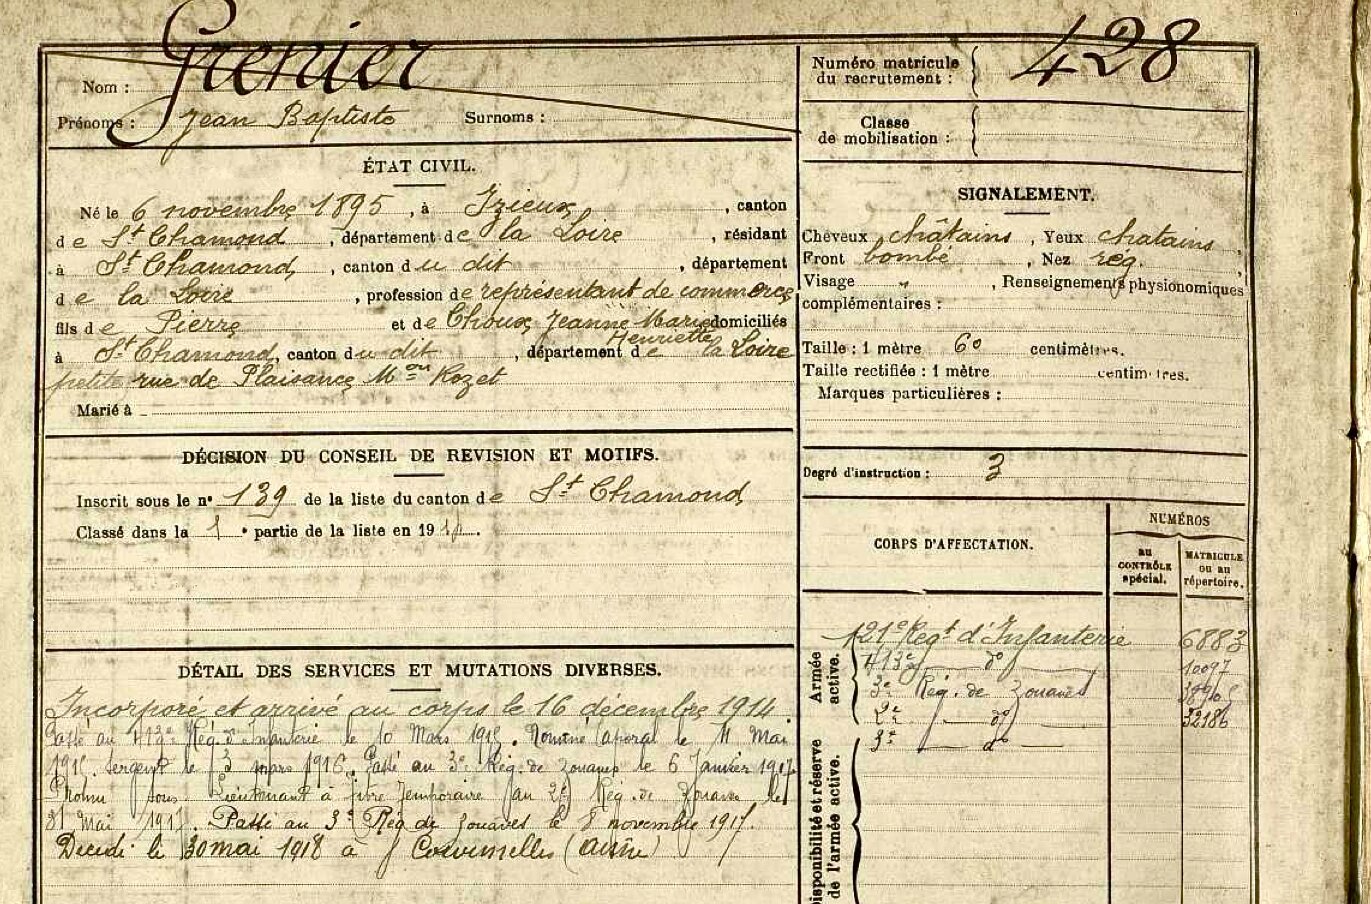 Grenier
Nom :
Prénoms : Jean Baptiste Surnoms :
Numéro matricule du recrutement : 428
Classe de mobilisation :
ÉTAT CIVIL.
Né le 6 novembre 1895, à Izieux, canton
de St Chamond, département de la Loire, résidant
à St Chamond, canton du dit, département
de la Loire, profession de représentant de commerce
fils de Pierre et de Choux Jeanne Marie Henriette domiciliés
à St Chamond, canton du dit, département de la Loire
petite rue de Plaisance Mon Rozet
Marié à
DÉCISION DU CONSEIL DE REVISION ET MOTIFS.
Inscrit sous le n° 139 de la liste du canton de St Chamond
Classé dans la 1e partie de la liste en 1914.
DÉTAIL DES SERVICES ET MUTATIONS DIVERSES.
Incorporé et arrivé au corps le 16 décembre 1914.
Passé au 413e Rég. d'Infanterie le 10 Mars 1915. Nommé Caporal le 11 Mai
1915. Sergent le 3 mars 1916. Passé au 3e Rég. de Zouaves le 6 Janvier 1917
Promu sous Lieutenant à titre temporaire au 2e Rég. de Zouaves le
31 Mai 1917. Passé au 3e Rég de Zouaves le 8 novembre 1917.
Décédé le 30 mai 1918 à (Aisne)
SIGNALEMENT.
Cheveux châtains, Yeux chatains
Front bombé, Nez rég.
Visage " , Renseignements physionomiques
complémentaires :
Taille : 1 mètre 60 centimètres.
Taille rectifiée : 1 mètre centimètres.
Marques particulières :
Degré d'instruction : 3
CORPS D'AFFECTATION.
NUMÉROS
AU CONTRÔLE spécial.
MATRICULE ou au répertoire.
Armée active.
121e Régt d'Infanterie 6883
413e — do — 10097
3e Rég. de Zouaves
2e — do — 32186
3e — do
Disponibilité et réserve de l'armée active.